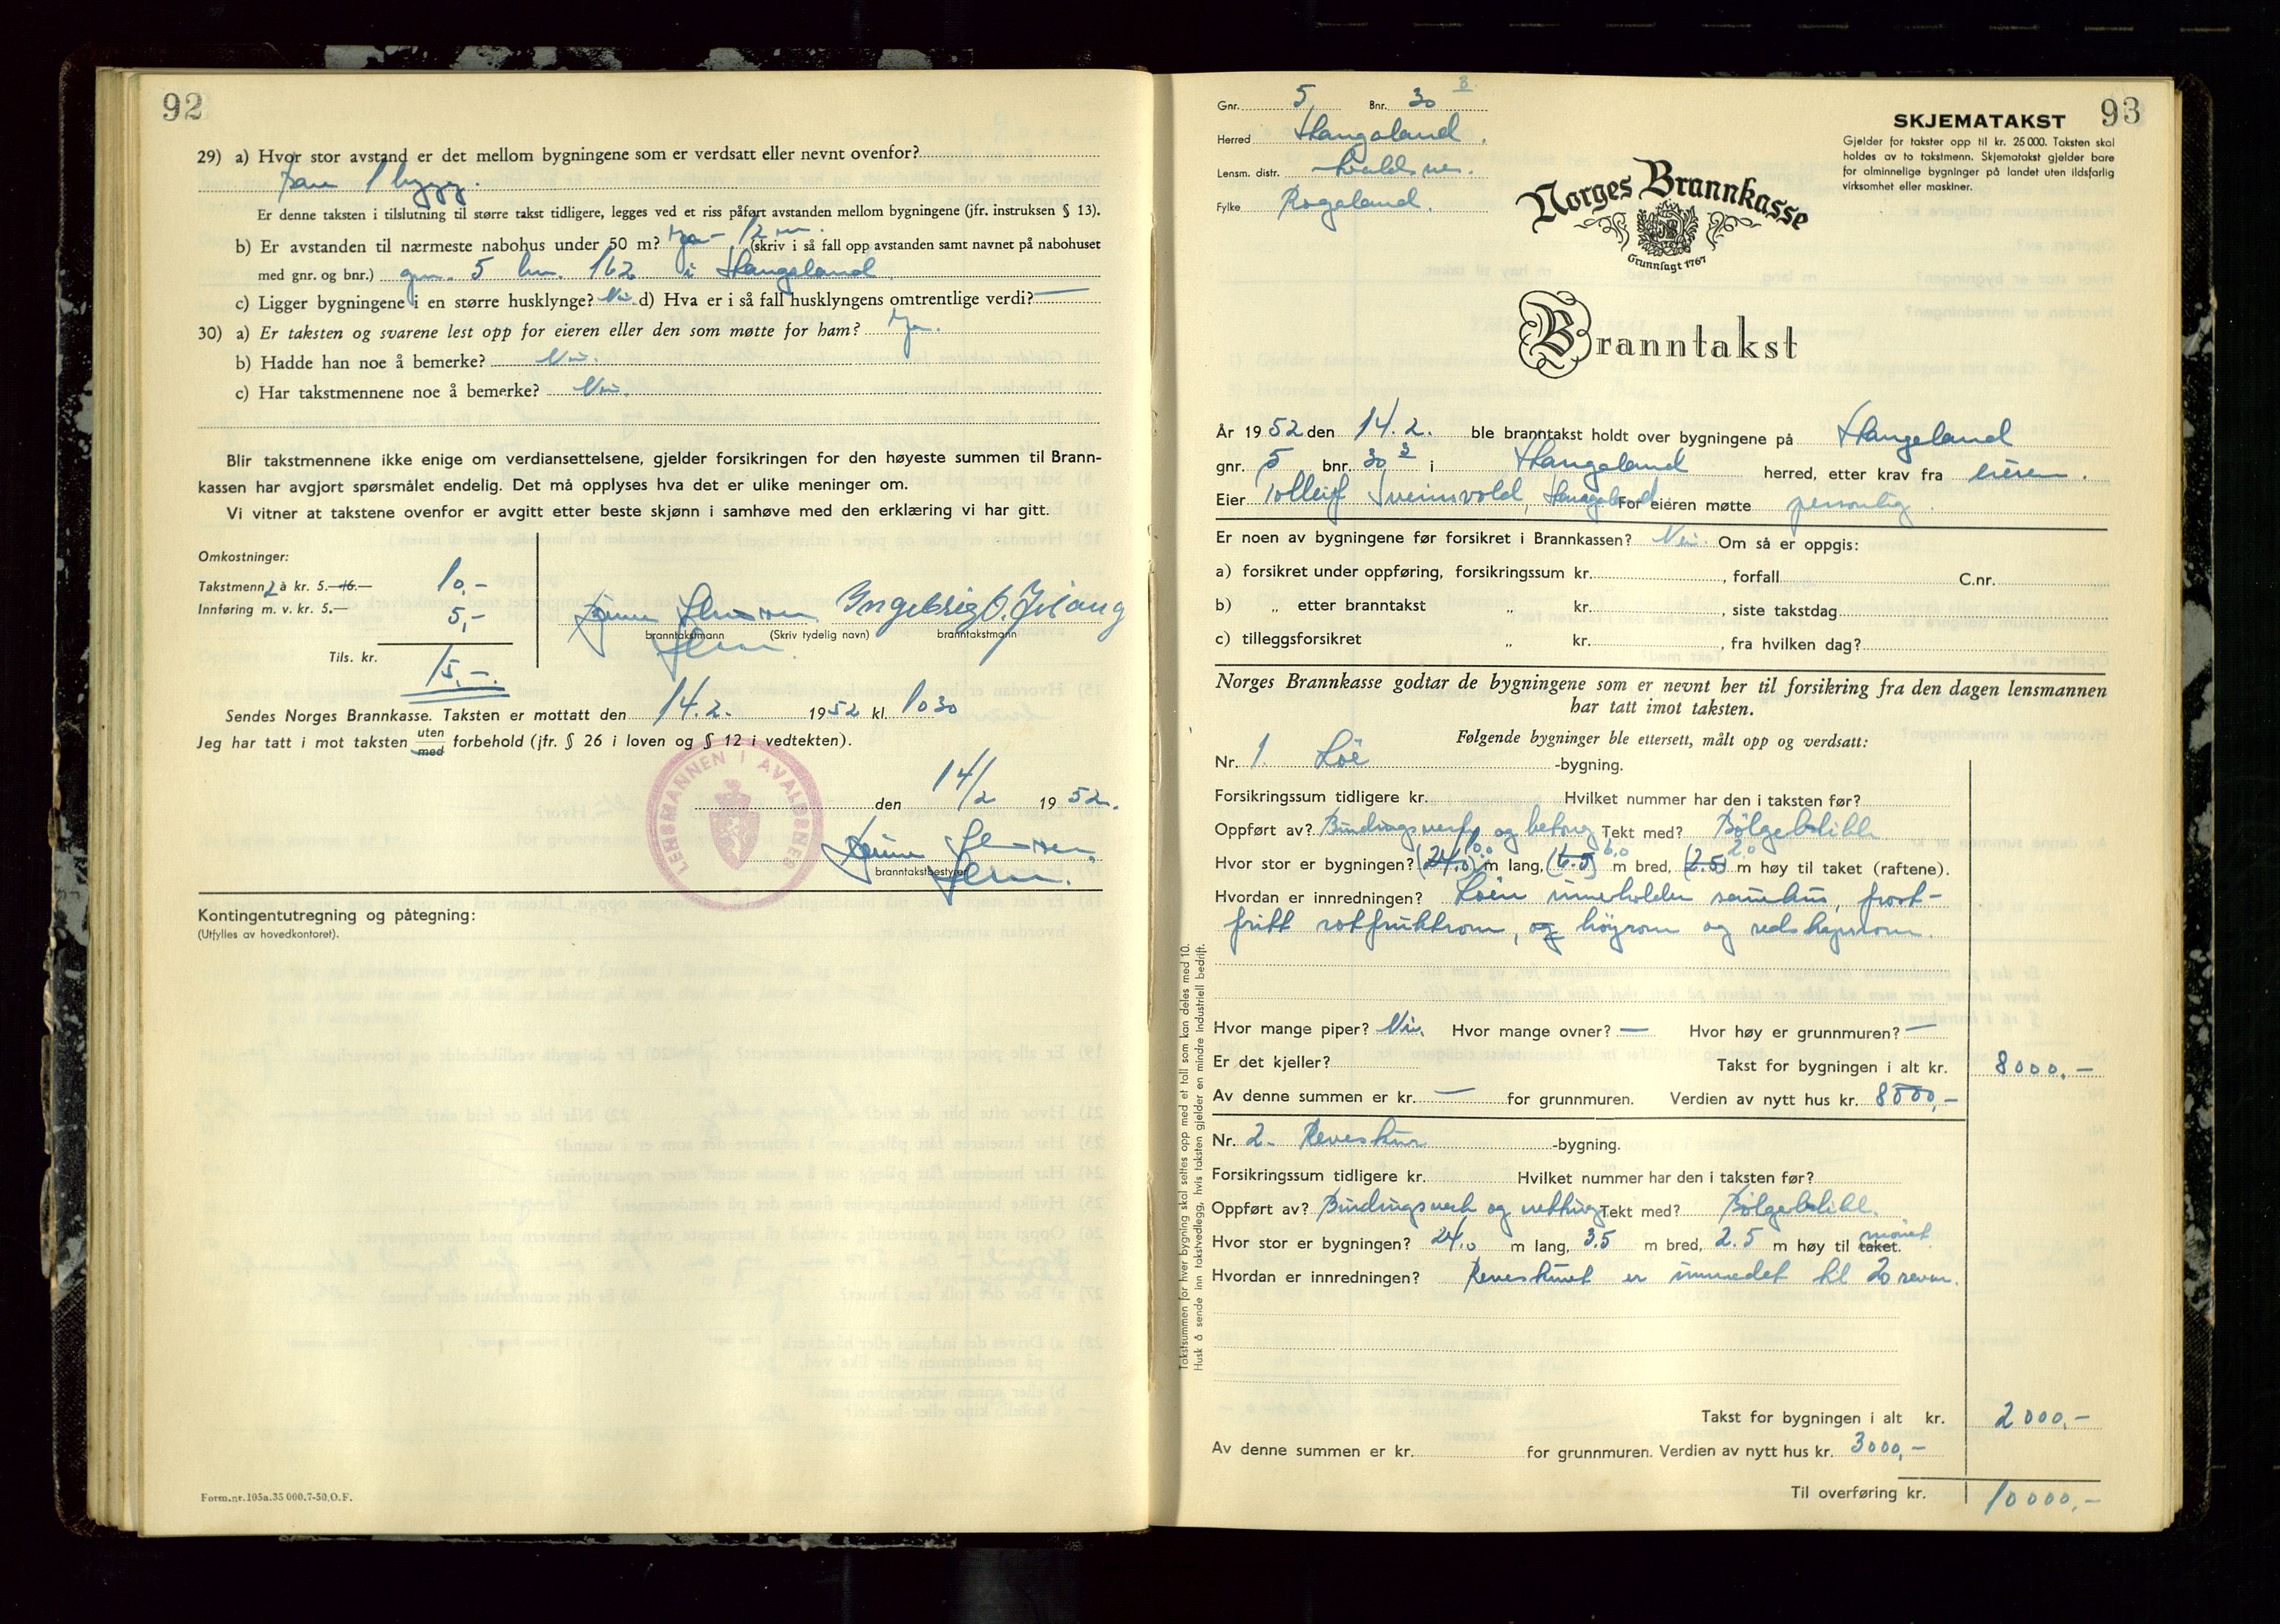 92
29) a) Hvor stor avstand er det mellom bygningene som er verdsatt eller nevnt ovenfor?
bare 1 bygg.
Er denne taksten i tilslutning til større takst tidligere, legges ved et riss påført avstanden mellom bygningene (jfr. instruksen § 13).
b) Er avstanden til nærmeste nabohus under 50 m? Ja - 12 m. (skriv i så fall opp avstanden samt navnet på nabohuset
med gnr. og bnr.) gnr. 5 bnr. 162 i Haugaland
c) Ligger bygningene i en større husklynge? Nei. d) Hva er i så fall husklyngens omtrentlige verdi? —
30) a) Er taksten og svarene lest opp for eieren eller den som møtte for ham? Ja.
b) Hadde han noe å bemerke? Nei.
c) Har takstmennene noe å bemerke? Nei.
Blir takstmennene ikke enige om verdiansettelsene, gjelder forsikringen for den høyeste summen til Brann-
kassen har avgjort spørsmålet endelig. Det må opplyses hva det er ulike meninger om.
Vi vitner at takstene ovenfor er avgitt etter beste skjønn i samhøve med den erklæring vi har gitt.
Omkostninger:
Takstmenn 2 à kr. 5.—16.— 10,-
Innføring m. v. kr. 5.— 5,-
Tils. kr. 15,-.
branntakstmann (Skriv tydelig navn) branntakstmann
Sendes Norges Brannkasse. Taksten er mottatt den 14.2. 1952 kl. 1030
Jeg har tatt i mot taksten uten med forbehold (jfr. § 26 i loven og § 12 i vedtekten).
LENSMANNEN I AVALDSNES
den 14/2 1952.
branntakstbestyrer
Kontingentutregning og påtegning:
(Utfylles av hovedkontoret).
Form.nr.105a.35 000.7-50.O.F.
93
Gnr. 5 Bnr. 30 B.
Herred Haugaland.
Lensm. distr. Avaldsnes.
Fylke Rogaland.
SKJEMATAKST
Gjelder for takster opp til kr. 25 000. Taksten skal
holdes av to takstmenn. Skjematakst gjelder bare
for alminnelige bygninger på landet uten ildsfarlig
virksomhet eller maskiner.
Norges Brannkasse
Grunnlagt 1767
Branntakst
År 1952 den 14.2. ble branntakst holdt over bygningene på Haugaland
gnr. 5 bnr. 30 i Haugaland herred, etter krav fra eieren.
Eier Tolleif Sveinsvold, Haugaland. For eieren møtte personlig.
Er noen av bygningene før forsikret i Brannkassen? Nei. Om så er oppgis:
a) forsikret under oppføring, forsikringssum kr. , forfall C.nr.
b) „ etter branntakst „ kr. , siste takstdag
c) tilleggsforsikret „ kr. , fra hvilken dag?
Norges Brannkasse godtar de bygningene som er nevnt her til forsikring fra den dagen lensmannen
har tatt imot taksten.
Følgende bygninger ble ettersett, målt opp og verdsatt:
Nr. 1. Löe -bygning.
Forsikringssum tidligere kr. Hvilket nummer har den i taksten før?
Oppført av? Bindingsverk og betong Tekt med? Bølgeblikk
Hvor stor er bygningen? (24,0) 10.0 m lang, (6.5) 6,0 m bred, (2.5) 2.0 m høy til taket (raftene).
Hvordan er innredningen? Löen inneholder sauehus, frost-
fritt rotfruktrom, og höyrom og redskapsrom.
Hvor mange piper? Nei. Hvor mange ovner? — Hvor høy er grunnmuren? —
Er det kjeller? Takst for bygningen i alt kr. 8000,-
Av denne summen er kr. — for grunnmuren. Verdien av nytt hus kr. 8000,-
Nr. 2. Reveskur -bygning.
Forsikringssum tidligere kr. Hvilket nummer har den i taksten før?
Oppført av? Bindingsverk og netting Tekt med? Bølgeblikk.
Hvor stor er bygningen? 24,0 m lang, 3.5 m bred, 2.5 m høy til taket. mönet
Hvordan er innredningen? Reveskuret er innredet til 20 rever.
Takst for bygningen i alt kr. 2000,-
Av denne summen er kr. for grunnmuren. Verdien av nytt hus kr. 3000,-
Til overføring kr. 10000,-
Takstsummen for hver bygning skal settes opp med et tall som kan deles med 10.
Husk å sende inn takstvedlegg, hvis taksten gjelder en mindre industriell bedrift.